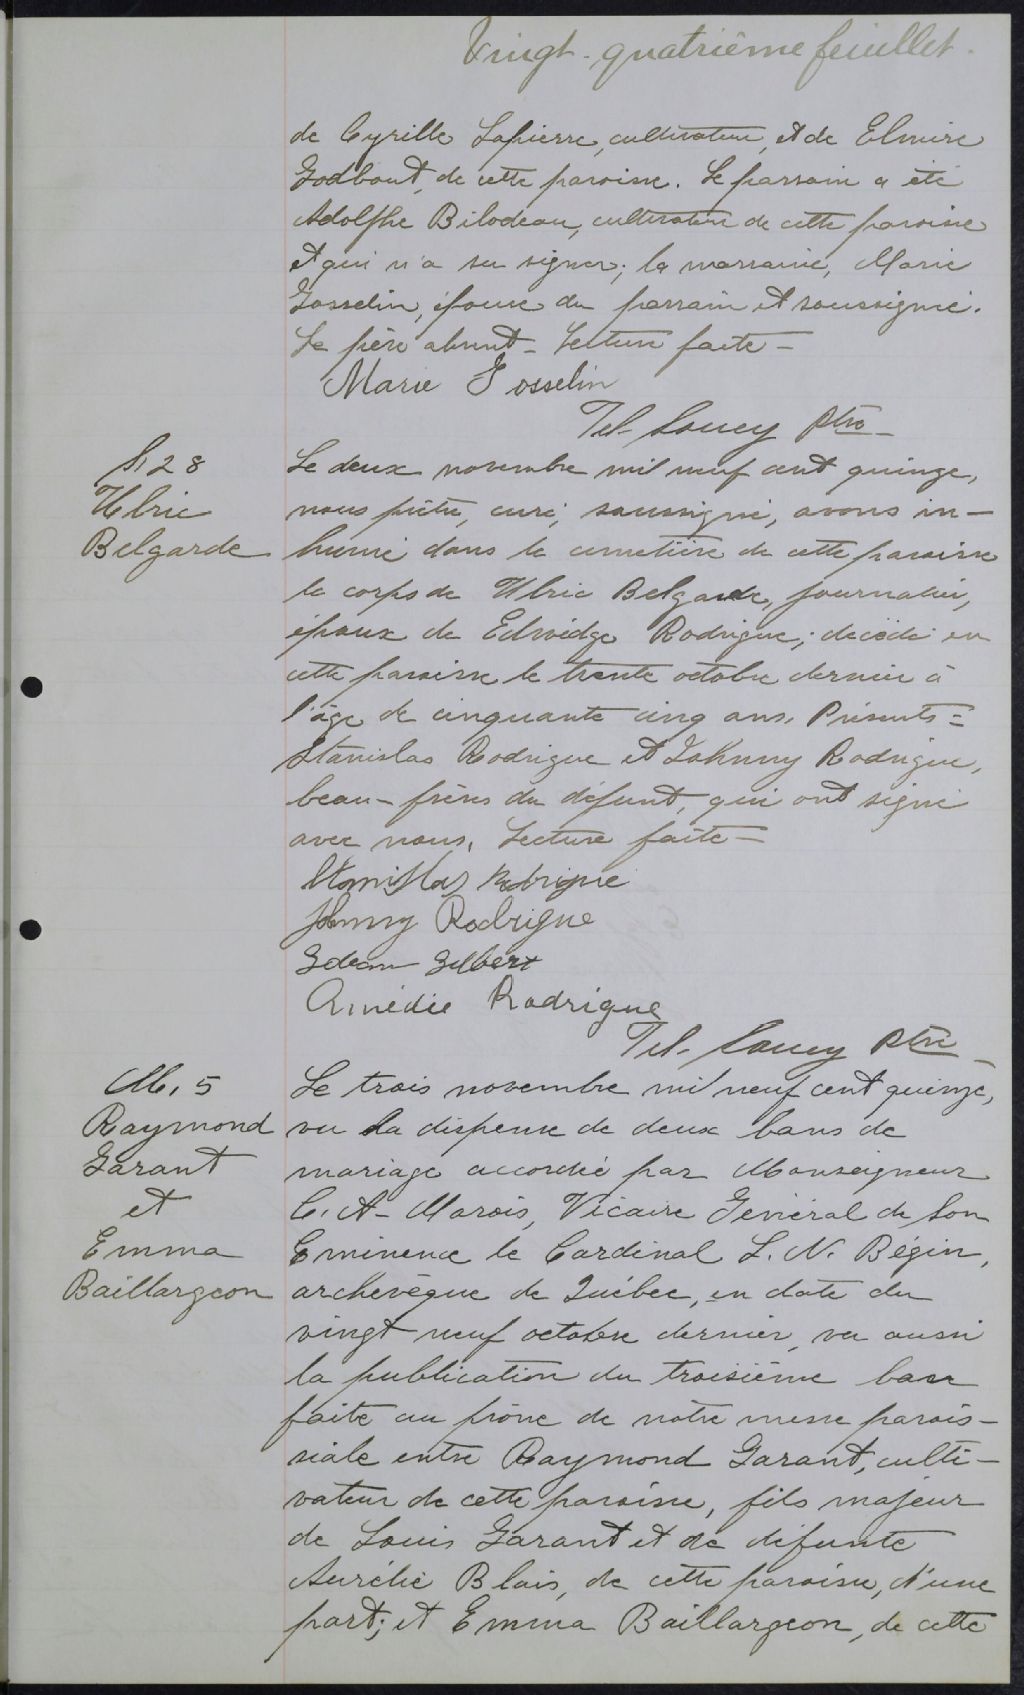 Vingt-quatrième feuillet.
de Cyrille Lapierre, cultivateur, et de Elmire
Godbout, de cette paroisse. Le parrain a été
Adolphe Bilodeau, cultivateur de cette paroisse
et qui n'a su signer; la marraine, Marie
Gosselin, épouse du parrain et soussignée.
Le père absent - Lecture faite -
Marie Gosselin
Tel. Soucy Ptre
S. 28
Ulric
Belgarde
Le deux novembre mil neuf cent quinze,
nous prêtre, curé, soussigné, avons in-
humé dans le cimetière de cette paroisse
le corps de Ulric Belgarde, journalier,
époux de Edwidge Rodrigue; décédé en
cette paroisse le trente octobre dernier à
l'âge de cinquante cinq ans. Présents =
Stanislas Rodrigue et Johnny Rodrigue,
beau-frères du défunt, qui ont signé
avec nous. Lecture faite -
Stanislas Rodrigue
Johnny Rodrigue
Gédéon Gilbert
Amédie Rodrigue
Tel. Soucy Ptre
M. 5
Raymond
Garant
et
Emma
Baillargeon
Le trois novembre mil neuf cent quinze,
vu la dispense de deux bans de
mariage accordée par Monseigneur
C. A- Marois, Vicaire Général de Son
Eminence le Cardinal L. N. Bégin,
archevêque de Québec, en date du
vingt neuf octobre dernier, vu aussi
la publication du troisième ban
faite au prône de notre messe parois-
siale entre Raymond Garant, culti-
vateur de cette paroisse, fils majeur
de Louis Garant et de défunte
Aurélie Blais, de cette paroisse, d'une
part; et Emma Baillargeon, de cette